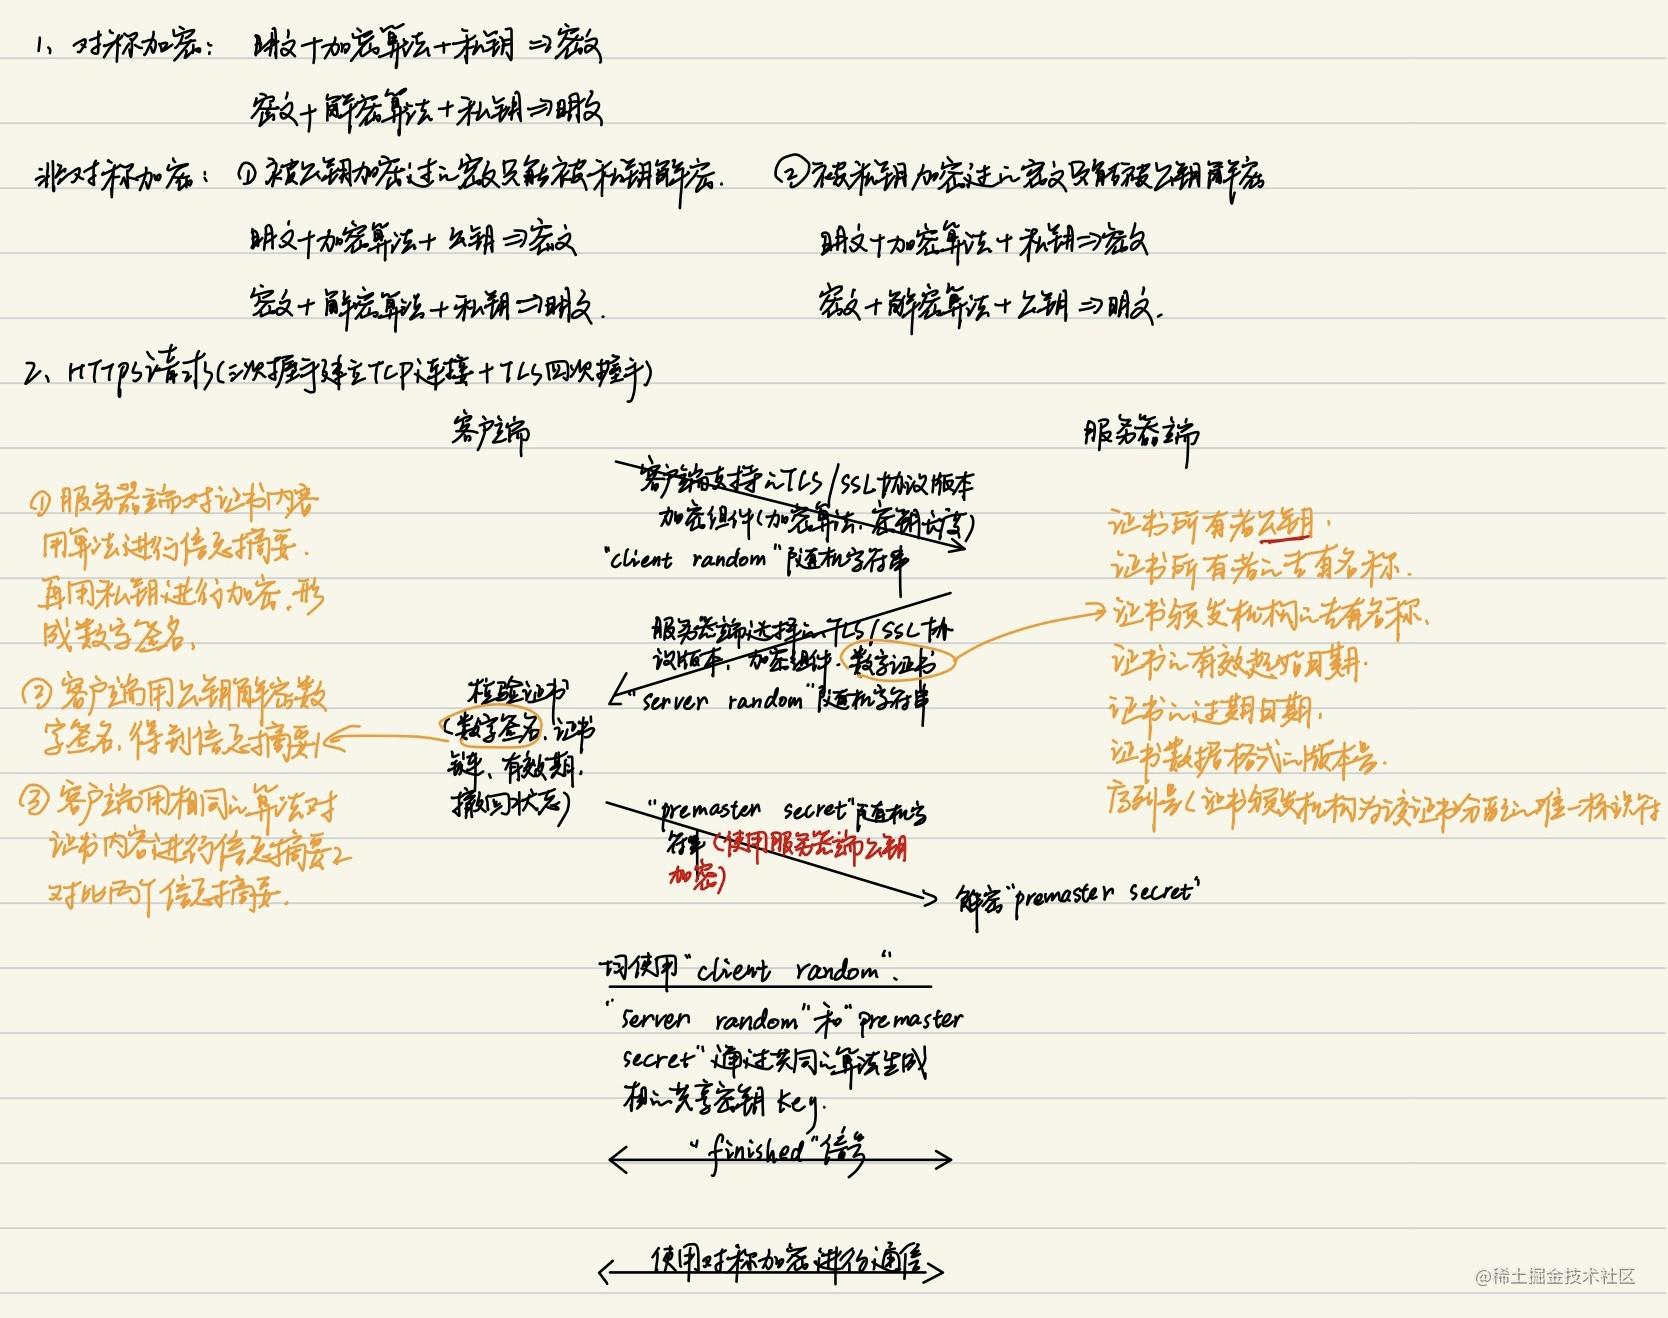 1、对称加密： 明文+加密算法+私钥⇒密文
密文+解密算法+私钥⇒明文
非对称加密：①被公钥加密过的密文只能被私钥解密. ②被私钥加密过的密文只能被公钥解密
明文+加密算法+公钥⇒密文 明文+加密算法+私钥⇒密文
密文+解密算法+私钥⇒明文. 密文+解密算法+公钥⇒明文.
2、HTTPS请求(三次握手建立TCP连接+TLS四次握手)
客户端 服务器端
客户端支持的TLS/SSL协议版本
加密组件(加密算法、密钥长度)
"client random"随机字符串
服务器端选择的TLS/SSL协
议版本、加密组件.数字证书
"server random"随机字符串
检验证书
(数字签名、证书
链、有效期.
撤回状态)
"premaster secret"随机字
符串(使用服务器端公钥
加密)
解密"premaster secret"
均使用"client random".
"server random"和"premaster
secret"通过共同的算法生成
相的共享密钥key.
"finished"信号
使用对称加密进行通信
①服务器端对证书内容
用算法进行信息摘要.
再用私钥进行加密.形
成数字签名、
②客户端用公钥解密数
字签名.得到信息摘要1
③客户端用相同的算法对
证书内容进行信息摘要2
对比两个信息摘要.
证书所有者公钥.
证书所有者的专有名称.
证书颁发机构的专有名称、
证书的有效起始日期.
证书的过期日期.
证书数据格式的版本号.
序列号(证书颁发机构为该证书分配的唯一标识符
@稀土掘金技术社区